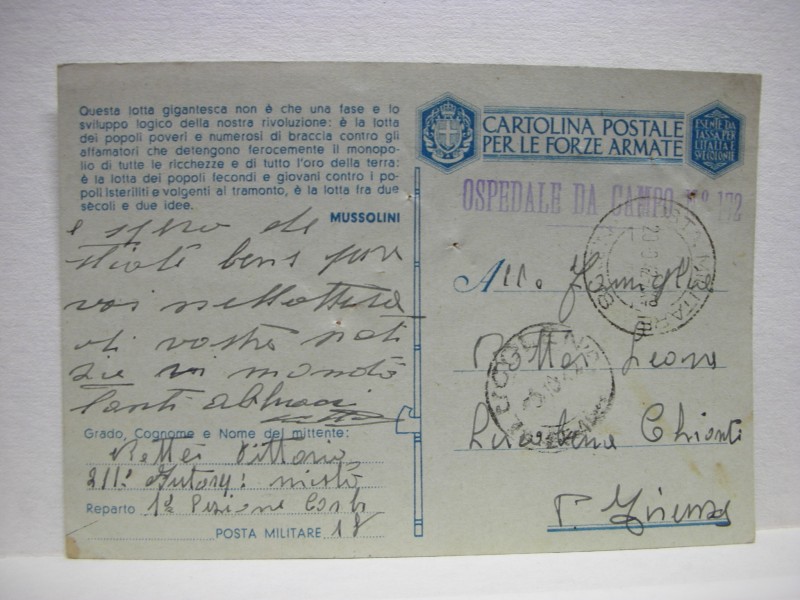 Questa lotta gigantesca non è che una fase e lo
sviluppo logico della nostra rivoluzione: è la lotta
dei popoli poveri e numerosi di braccia contro gli
affamatori che detengono ferocemente il monopo-
lio di tutte le ricchezze e di tutto l'oro della terra:
è la lotta dei popoli fecondi e giovani contro i po-
poli isteriliti e volgenti al tramonto, è la lotta fra due
sècoli e due idee.
MUSSOLINI
e spero de
stiate bene pure
voi nellattesa
di vostre noti
zie vi mando
tanti abbracci
Grado, Cognome e Nome del mittente:
Vittorio
211ª misto
Reparto 1ª Sezione
POSTA MILITARE 18
CARTOLINA POSTALE
PER LE FORZE ARMATE
ESENTE DA
TASSA PER
L'ITALIA E
SUE COLONIE
OSPEDALE DA CAMPO Nº 172
POSTA MILITARE
Alla Famiglia
Leone
Chianti
P. Firenze